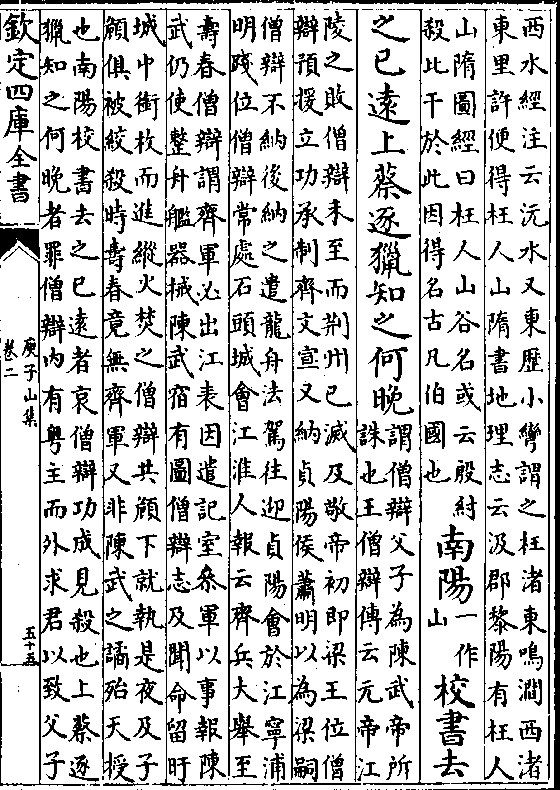 西水經注云沅水又東歷小彎謂之枉渚東鳴澗西渚
東里許便得枉人山隋書地理志云汲郡黎陽有枉人
山隋圖經曰枉人山谷名或云殷紂
殺比干於此因得名古凡伯國也
南陽
一作
山
校書去
之已遠上蔡逐獵知之何晚
謂僧辯父子為陳武帝所
誅也王僧辯傳云元帝江
陵之敗僧辯未至而荆州已滅及敬帝初即梁王位僧
辯預援立功承制齊文宣又納貞陽侯蕭明以為梁嗣
僧辯不納後納之遣龍舟法駕往迎貞陽會於江寧浦
明踐位僧辯常處石頭城會江淮人報云齊兵大舉至
壽春僧辯謂齊軍必出江表因遣記室參軍以事報陳
武仍使整舟艦器械陳武宿有圖僧辯志及聞命留盱
城中銜枚而進縱火焚之僧辯共頠下就執是夜及子
頠俱被絞殺時壽春竟無齊軍又非陳武之譎殆天授
也南陽校書去之已遠者哀僧辯功成見殺也上蔡逐
獵知之何晚者罪僧辯內有粤主而外求君以致父子
欽定四庫全書
庾子山集
卷二
五十五